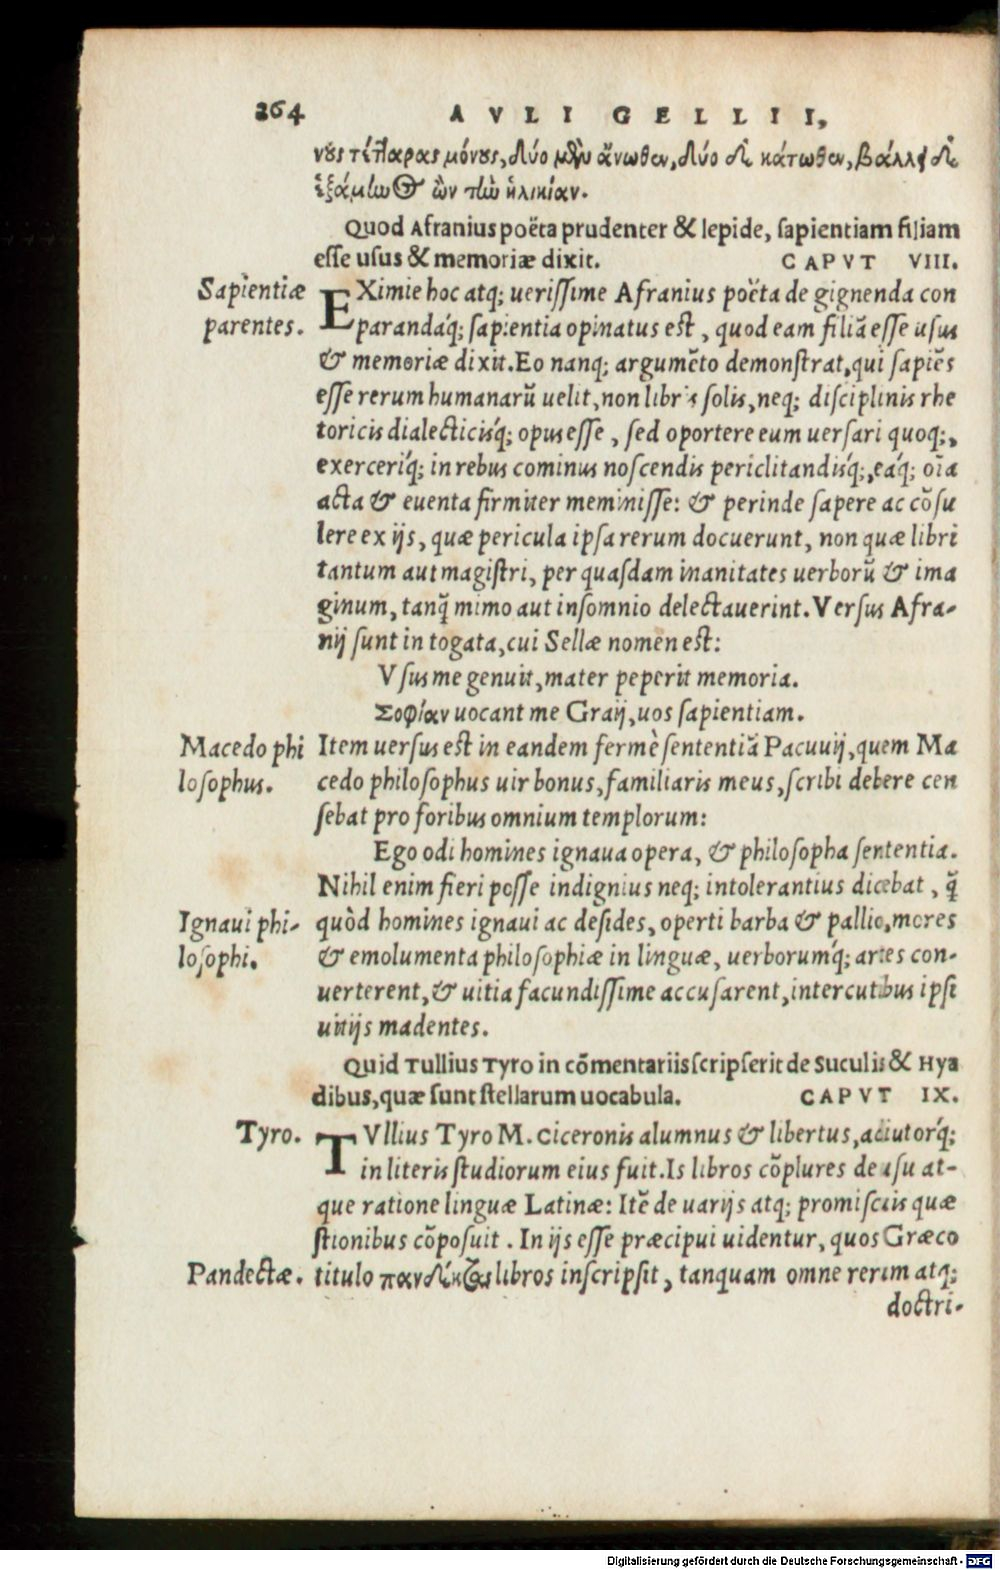 264 AVLI GELLII,
νους τέτ]αρας μόνους, δύο μὲν ἄνωθεν, δύο δὲ κάτωθεν, βάλλει δὲ
ἑξάμηνος ὢν τὴν ἡλικίαν.
Quod Afranius poëta prudenter & lepide, sapientiam filiam
esse usus & memoriæ dixit. CAPVT VIII.
Sapientiæ
parentes.
EXimie hoc atq; uerissime Afranius poëta de gignenda con
parandáq; sapientia opinatus est, quod eam filiā esse usus
& memoriæ dixit. Eo nanq; argumēto demonstrat, qui sapiēs
esse rerum humanarū uelit, non libris solis, neq; disciplinis rhe
toricis dialecticisq́; opus esse, sed oportere eum uersari quoq;,
exerceriq́; in rebus cominus noscendis periclitandisq́;, eáq; oīa
acta & euenta firmiter meminisse: & perinde sapere ac cōsu
lere ex ijs, quæ pericula ipsa rerum docuerunt, non quæ libri
tantum aut magistri, per quasdam inanitates uerborū & ima
ginum, tanq̄ mimo aut insomnio delectauerint. Versus Afra-
nij sunt in togata, cui Sellæ nomen est:
Vsus me genuit, mater peperit memoria.
Σοφίαν uocant me Graij, uos sapientiam.
Macedo phi
losophus.
Item uersus est in eandem fermè sententiā Pacuuij, quem Ma
cedo philosophus uir bonus, familiaris meus, scribi debere cen
sebat pro foribus omnium templorum:
Ego odi homines ignaua opera, & philosopha sententia.
Nihil enim fieri posse indignius neq; intolerantius dicebat, q̄
Ignaui phi-
losophi.
quòd homines ignaui ac desides, operti barba & pallio, mores
& emolumenta philosophiæ in linguæ, uerborumq́; artes con-
uerterent, & uitia facundissime accusarent, intercutibus ipsi
uitijs madentes.
Quid Tullius Tyro in cōmentariis scripserit de Suculis & Hya
dibus, quæ sunt stellarum uocabula. CAPVT IX.
Tyro.
TVllius Tyro M. Ciceronis alumnus & libertus, adiutorq́;
in literis studiorum eius fuit. Is libros cōplures de usu at-
que ratione linguæ Latinæ: Itē de uarijs atq; promiscuis quæ
stionibus cōposuit. In ijs esse præcipui uidentur, quos Græco
Pandectæ.
titulo πανδέκτας libros inscripsit, tanquam omne rerum atq;
doctri-
Digitalisierung gefördert durch die Deutsche Forschungsgemeinschaft - DFG